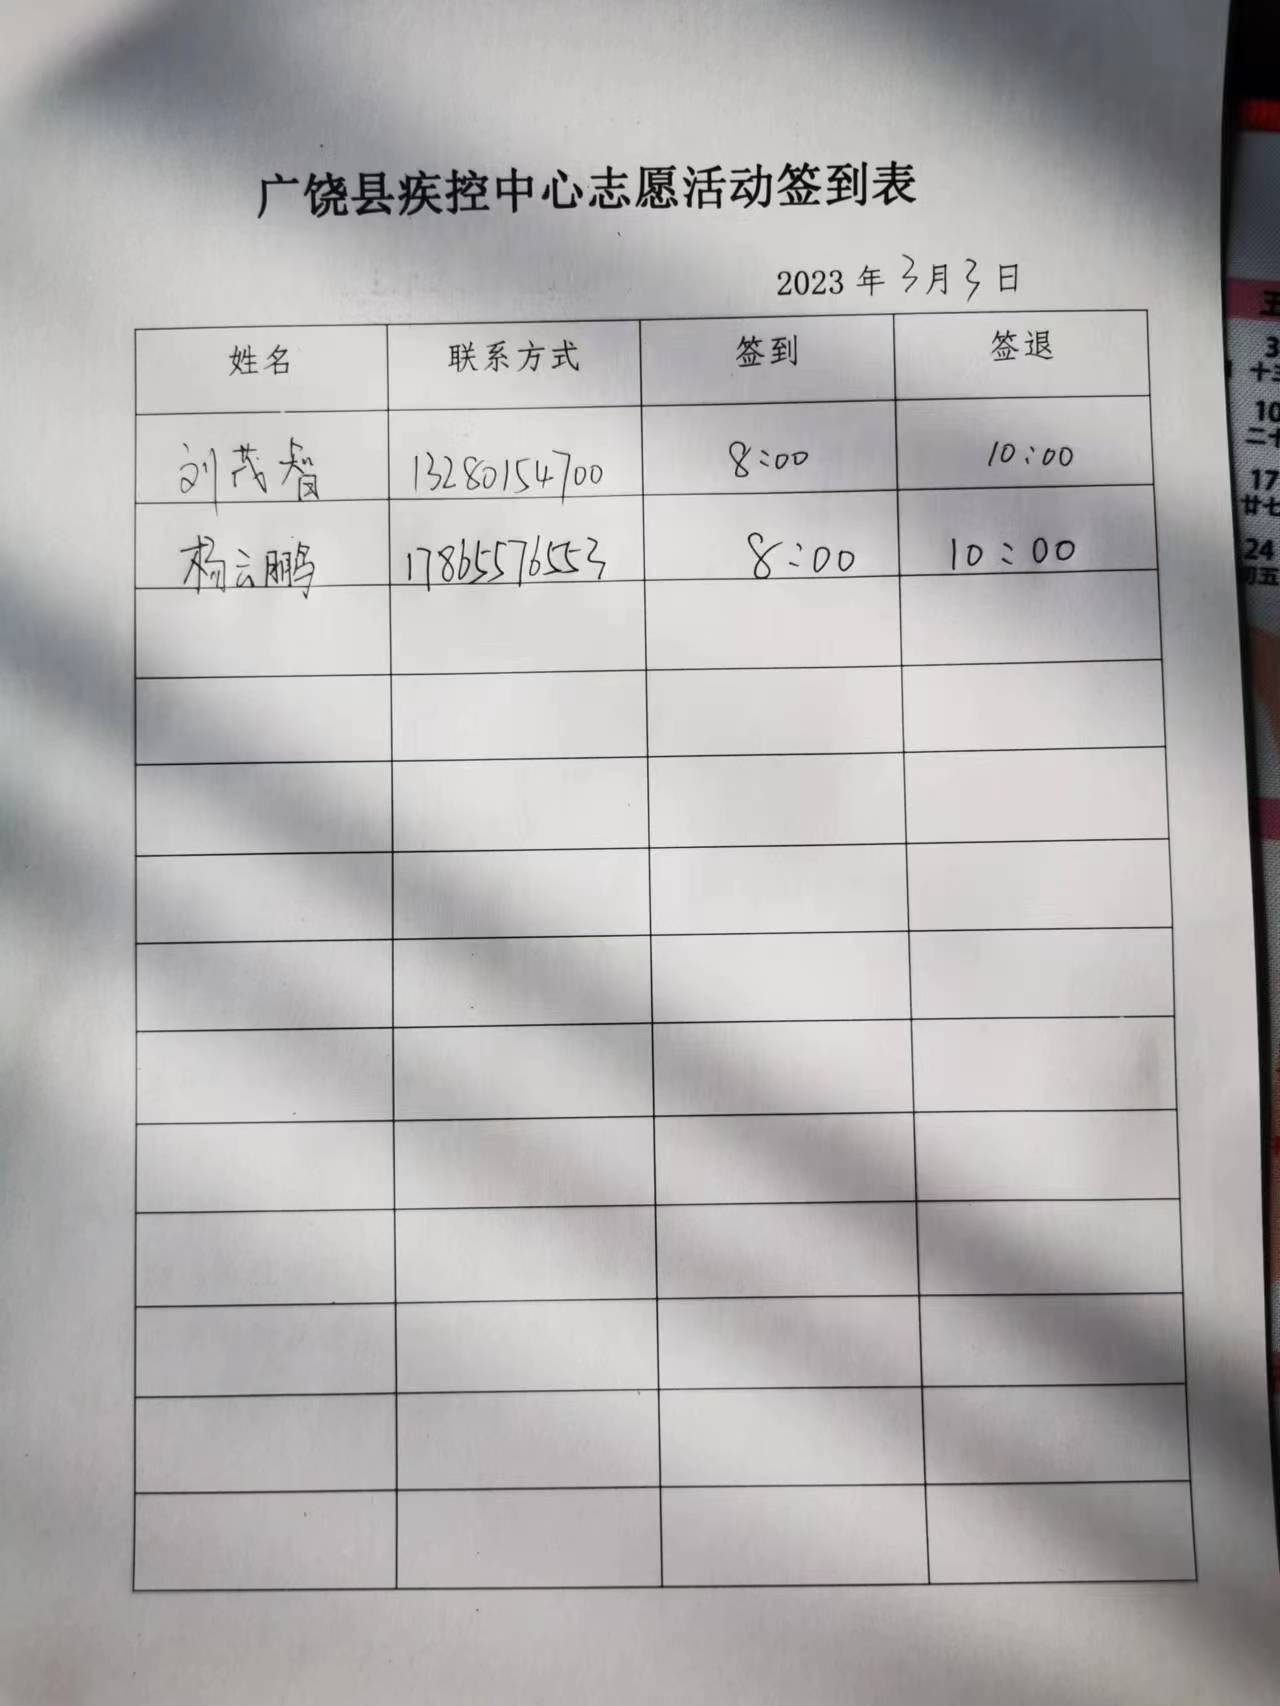 广饶县疾控中心志愿活动签到表
2023 年 3月 3 日
姓名 联系方式 签到 签退
刘茂智 13280154700 8:00 10:00
杨云鹏 17865576553 8:00 10:00
五
3
十三
10
二十
17
廿七
24
初五